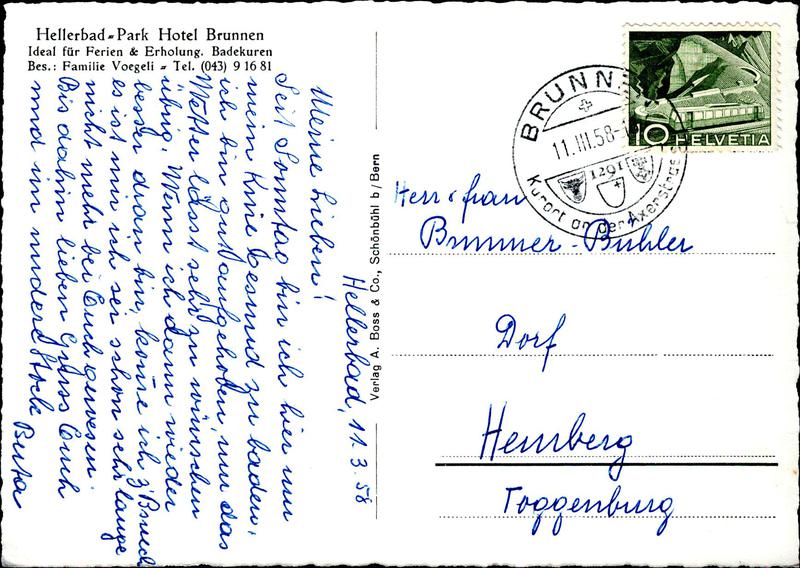 Hellerbad-Park Hotel Brunnen
Ideal für Ferien & Erholung. Badekuren
Bes.: Familie Voegeli - Tel. (043) 9 16 81
Hellerbad, 11.3.58
Meine Lieben!
Seit Sonntag bin ich hier um
mein Knie gesund zu baden,
ich bin gut aufgehoben, nur das
Wetter lässt sehr zu wünschen
übrig. Wenn ich dann wieder
besser dran bin, komme ich z'Bsuch
es ist mir ich sei schon sehr lange
nicht mehr bei Euch gewesen.
Bis dahin lieben Gruss Euch
und im undere Stock
Verlag A. Boss & Co., Schönbühl b/Bern
BRUNNEN
11.III.58
1291
Kurort an der Axenstrasse
10 HELVETIA
Herr & Frau
Brunner-Bühler
Dorf
Hemberg
Toggenburg